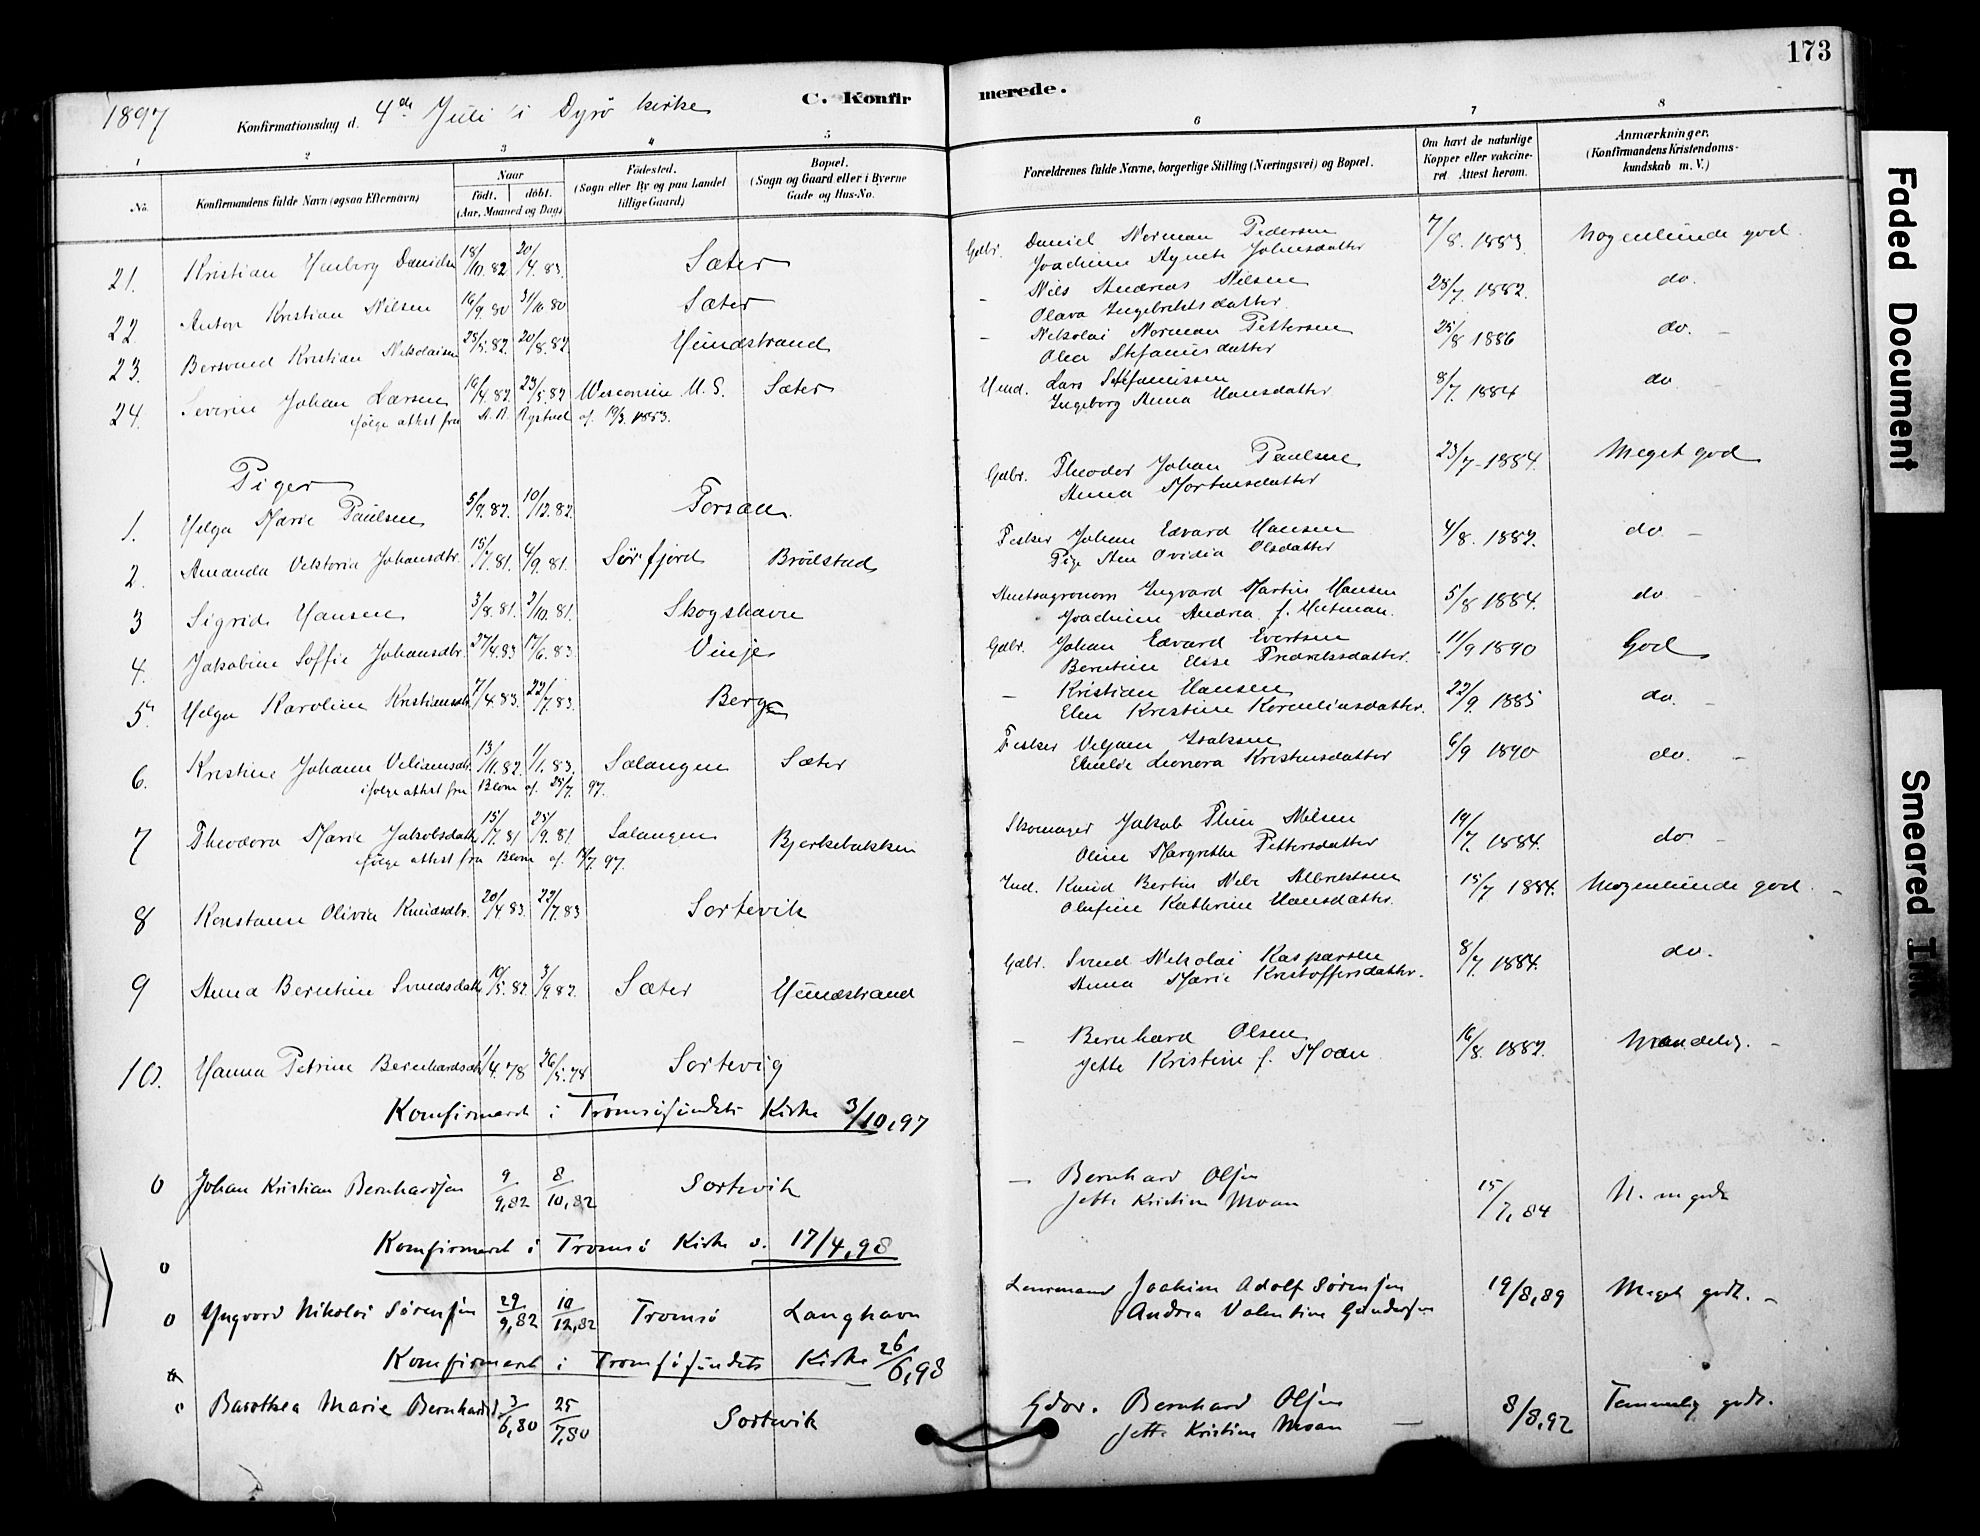 173
1897 Konfirmationsdag d. 4de Juli i Dyrø kirke C. Konfirmerede.
1 2 3 4 5 6 7 8
No. Konfirmandens fulde Navn (ogsaa Efternavn) Naar Födt. döbt. (Aar, Maaned og Dag) Födested. (Sogn eller By og paa Landet tillige Gaard) Bopæl. (Sogn og Gaard eller i Byerne Gade og Hus-No. Forældrenes fulde Navne, borgerlige Stilling (Næringsvei) og Bopæl. Om havt de naturlige Kopper eller vakcineret. Attest herom. Anmærkninger. (Konfirmandens Kristendomskundskab m. V.)
21. Kristian Hedberg 18/10.82 20/4.83. Sæter Gdbr. Daniel Norman Pedersen 7/8.1883 Nogenlunde god.
Joachime Agnete Johnsdatter
22 Anton Kristian Nilsen 16/9.80 31/10.80 Sæter - Nils Andreas Nilsen 28/7.1882. do.
Olava Ingebrektsdatter
23. Bersvend Kristian Nikolaisen 25/5.82. 20/8.82. Hundstrand - Nikolai Norman Pettersen 25/8 1886 do. -
Olea Stefanusdatter
24. Severin Johan Larsen 16/4.82. 23/5.82 Wisconsin U. S. Sæter Lars Stefanussen 8/7.1884 do
Ingeborg Anna Hansdatter
ifølge attest fra A. N. Rystad af 19/3.1883.
Piger
1. Helga Marie Paulsen 5/9.82. 10/12.82. Forsaa. Gdbr. Theodor Johan Paulsen 23/7-1884. Meget god
Anna Mortensdatter
2. Amanda Viktoria Johansdtr. 15/7.81. 4/9.81. Sørfjord Brölstad Fisker Johan Edvard Hansen 4/8.1882. do. -
Pige Ane Ovidia Olsdatter
3 Sigrid Hansen 3/8.81. 2/10.81. Skogshavn Amtsagronom Ingvard Martin Hansen 5/8 1884. do -
Joachime Andrea f. Hutman.
4. Jakobine Soffie Johansdtr. 27/4.83 17/6.83 Vinje Gdbr. Johan Edvard Evertsen 11/9 1890 God
Berntine Elise Fredriksdatter.
5. Helga Karoline Kristiansdtr. 7/4.83. 22/7.83. Berg - Kristian Hansen 22/9.1885 do. -
Elen Kristine Korneliusdatter.
6. Kristine Johanne Viliamsdtr. 13/11.82. 1/1.83. Salangen Sæter Fisker Viljam Isaksen 6/9 1890 do. -
Leonora Kristensdatter
ifølge attest fra Blom af. 25/7.97.
7 Theodora Marie Jakobsdatter 15/7.81 25/9.81. Salangen Bjerkebakken Skomager Jakob Nilsen 19/7.1884. do -
Oline Margrethe Pettersdatter
ifølge attest fra Blom af. 14/7.97.
8 Konstanse Olivia Knudsdtr. 20/4.83. 22/7.83 Sortevik Ind. Knud Bertin Nils Albriktsen 15/7 1884. Nogenlunde god. -
Olufine Kathrine Hansdatter.
9 Anna Berntine Svendsdatter 10/5.82. 3/9.82. Sæter Hundstrand Gdbr. Svend Nikolai Kaspersen 8/7.1884. do.
Anna Marie Kristoffersdatter.
10. Hanna Petrine Bernhardsdtr. 1/4.78 26/5.78 Sortevig - Bernhard Olsen 16/8.1882. Maadelig. -
Jette Kristine f. Moan
Konfirmeret i Tromsøsundets Kirke 3/10,97
0 Johan Kristian Bernhardsen 9/9,82 8/10,82 Sortevik - Bernhard Olsen 15/7,84
Jette Kristine Moan
Konfirmeret i Tromsø Kirke d. 17/4,98
0
0 Yngvard Nikolai Sørensen 29/9,82 10/12,82 Tromsø Langhavn Lensmand Joakim Adolf Sørensen 19/8,89 Meget godt. -
Andrea Valentine Gundersen
Konfirmeret i Tromsøsundets Kirke 26/6,98
0 Barothea Marie Bernhardsd. 3/6,80 25/7,80 Sortevik Gdbr. Bernhard Olsen 8/8,92 Temmelig godt.
Jette Kristine Moan -
Faded Document
Smeared Ink